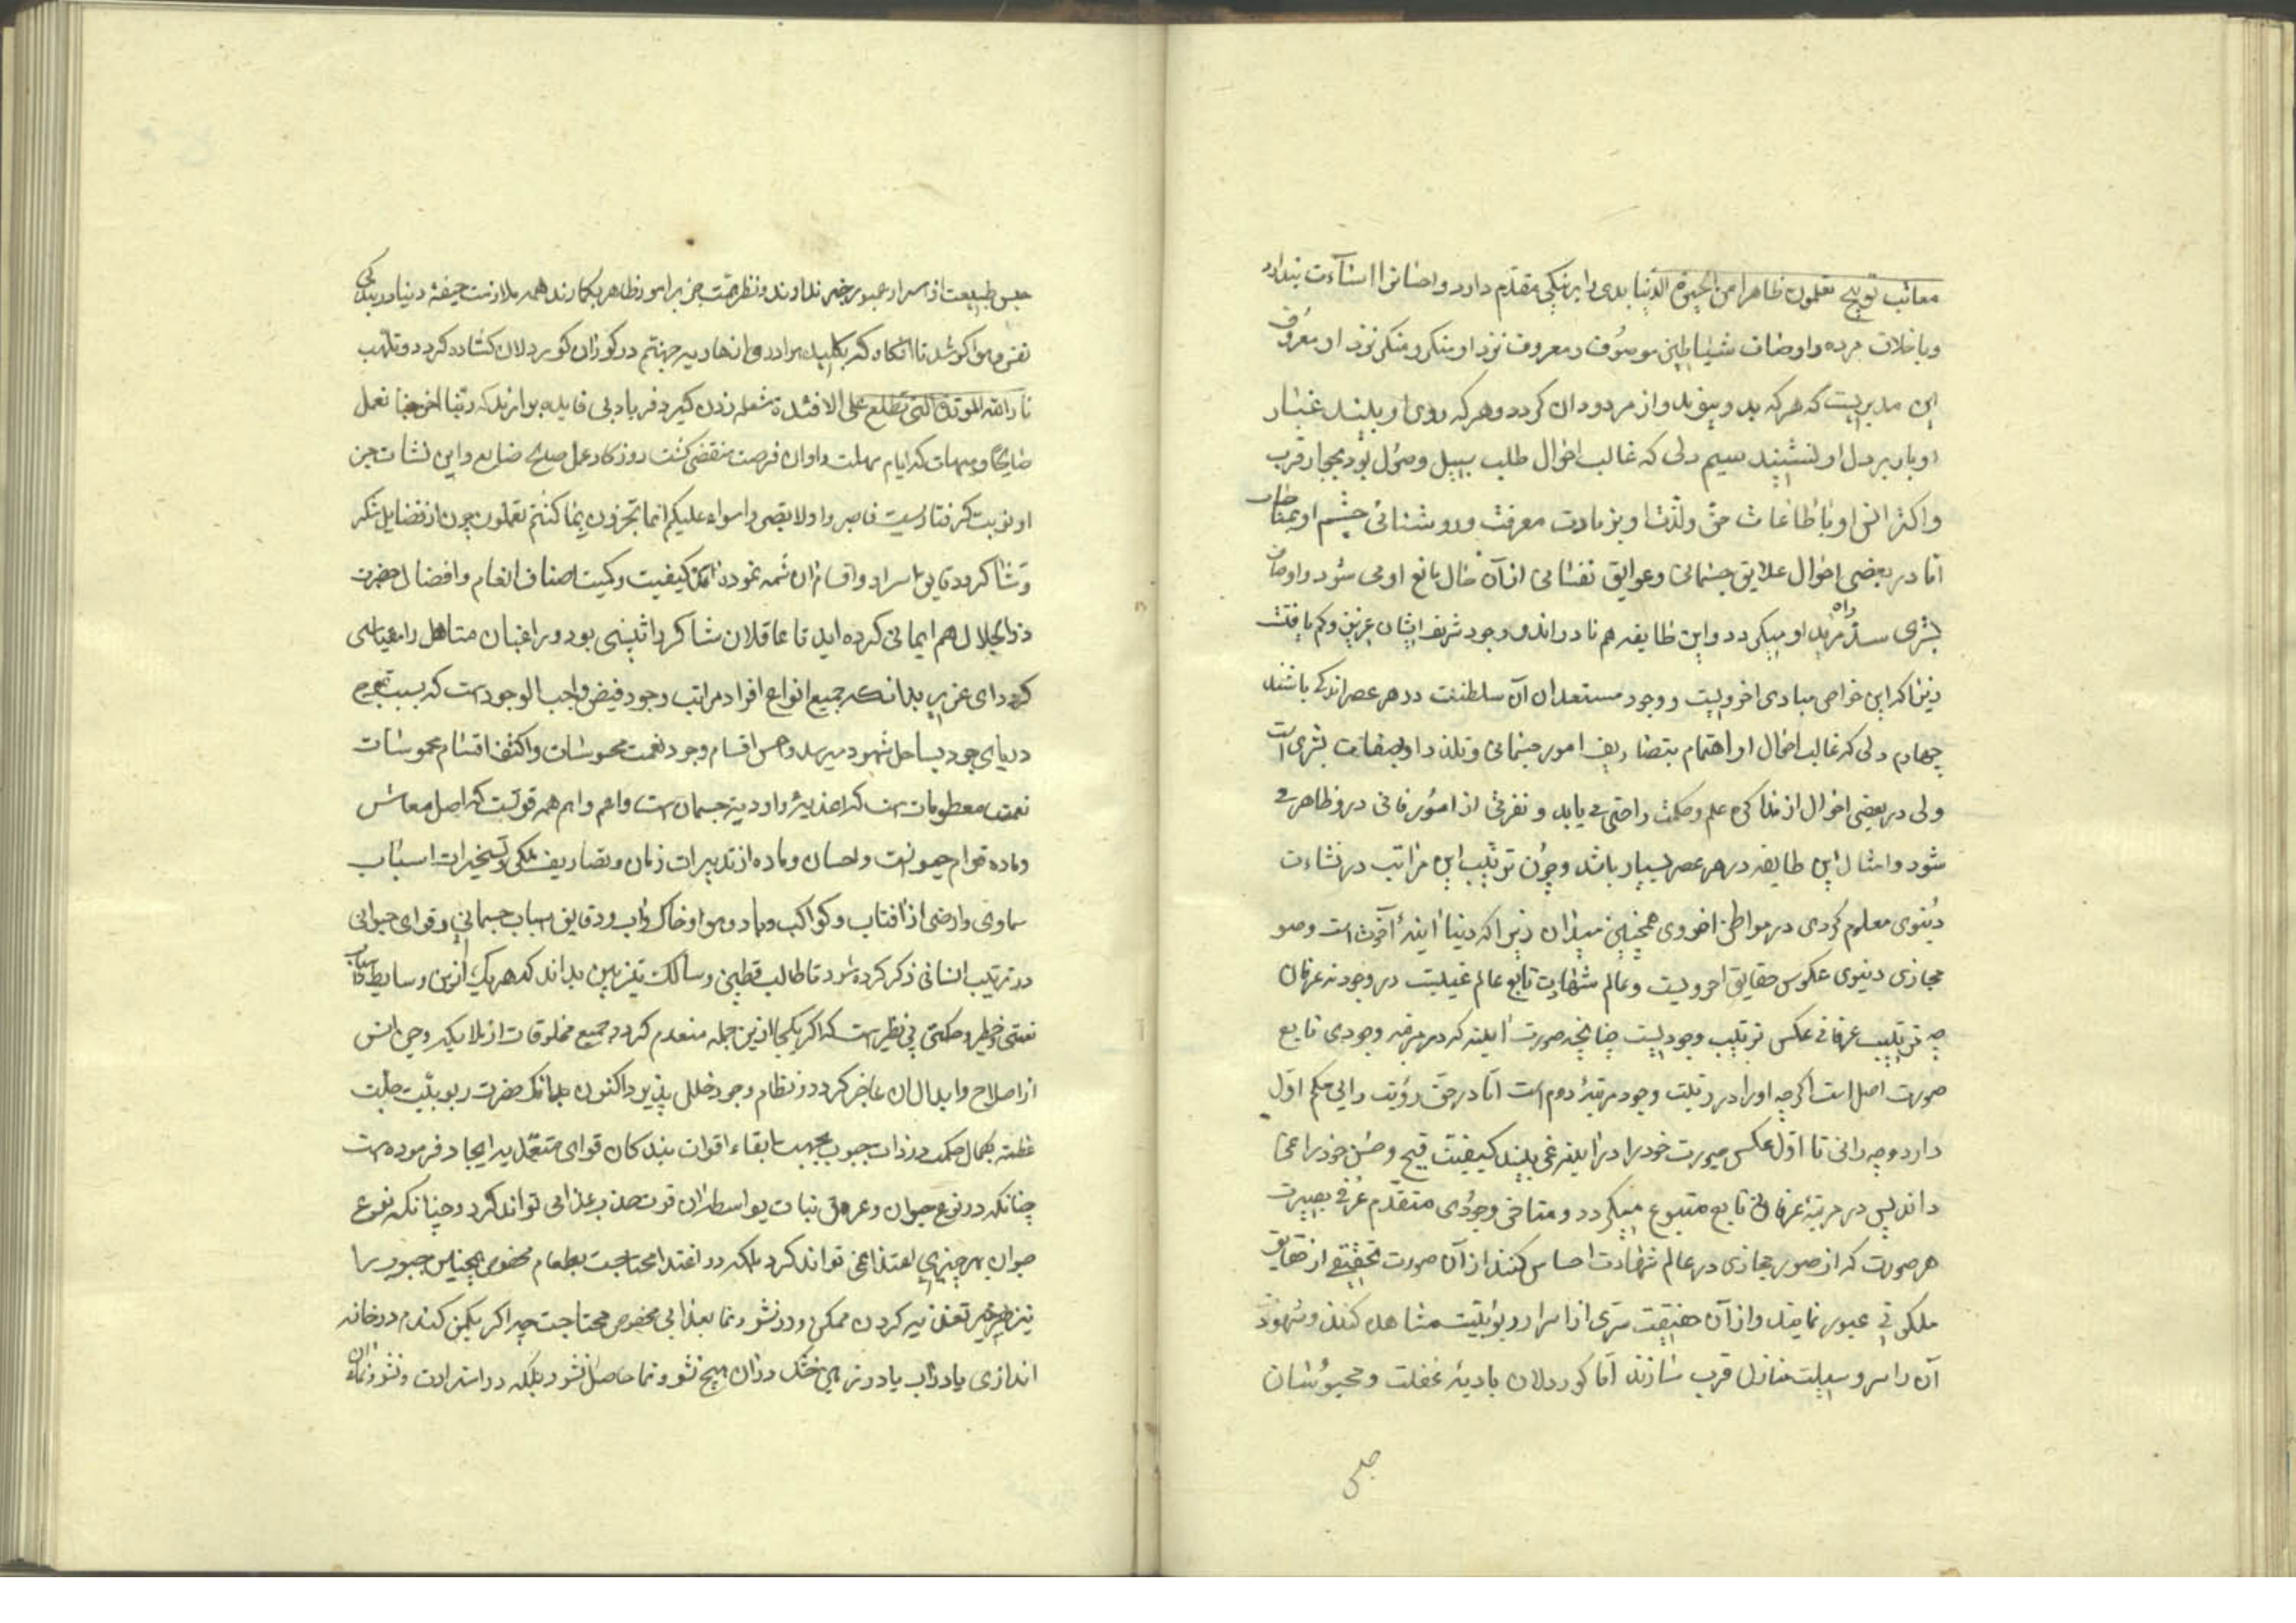 معاتب توبیخ تعلمون ظاهرا من الحیوة الدنیا بدی را بر نیکی مقدم دارد و احسان را اساءت پندارد
و باخلاق مرده و اوصاف شیاطین موصوف و معروف نزد او منکر و منکر نزد او معروف
این مدبریست که هر که بد و پیوندد از مردودان گردد و هر که روی او بیند غبار
ادبار بر دل او نشیند سیم دلی که غالب احوال طلب سبیل وصول بود بجوار قرب
و اکثر انس او با طاعات حق و لذت او بزیادت معرفت و روشنائی چشم او بمناجات
اما در بعضی احوال علایق جسمانی و عوایق نفسانی از آن حال مانع او می شود و اوصاف
بشری سد راه مزید او میگردد و این طایفه هم نادراند و وجود شریف ایشان عزیز و کم یافت
زیرا که این خواص مبادی اخرویست و وجود مستعدان آن سلطنت در هر عصر اندکی باشند
چهارم دلی که غالب احوال او اهتمام بتصاریف امور جسمانی و تلذذ او بصفات بشری است
ولی در بعضی احوال از مذاکره علم و حکمت راحتی می یابد و نفرتی از امور فانی درو ظاهر می
شود و امثال این طایفه در هر عصر بسیار باشد و چون ترتیب این مراتب در نشاءت
دنیوی معلوم کردی در مواطن اخروی همچنین میدان زیرا که دنیا آینهٔ آخرت است و صور
مجازی دنیوی عکوس حقایق اخرویست و عالم شهادت تابع عالم غیبست در وجود نه عرفان
چه ترتیب عرفانی عکس ترتیب وجودیست چنانچه صورت آینه که در مرتبه وجودی تابع
صورت اصل است اگرچه او را در رتبت وجود مرتبهٔ دوم است اما در حق رؤیت رایی حکم اول
دارد و چه رائی تا اول عکس صورت خود را در آیینه نمی بیند کیفیت قبح و حسن خود را نمی
داند پس در مرتبهٔ عرفان تابع متبوع میگردد و متاخر وجودی متقدم عرفی بصیرت
هر صورت که از صور مجازی در عالم شهادت احساس کنند از آن صورت تحقیقی از حقایق
ملکوتی عبور نمایند و از آن حقیقت سری از اسرار ربوبیت مشاهده کنند و شهود
آن را سر و سیلت منازل قرب سازند اما کوردلان بادیهٔ غفلت و محبوسان
حبس
حبس طبیعت از اسرار عبور خبر ندارند و نظر همت جز بر امور ظاهر نگمارند همه ملازمت جیفهٔ دنیا و بندگی
نفس و هوا کوشند تا آنگاه که بکلید مرادر وانهاویه جهنم در گور آن کوردلان گشاده گردد و تلهب
نار الله الموقدة التی تطلع علی الافئدة شعله زدن گیرد فریاد بی فایده بر آرند که ربنا اخرجنا نعمل
صالحا و هیهات که ایام مهلت و اوان فرصت منقضی گشت روزگار عمل صالح ضایع و این نشات جز
او نوبت گرفتاریست فاصبروا او لا تصبروا سواء علیکم انما تجزون بما کنتم تعملون چون از فضایل شکر
و شاکر و دقایق اسرار و اقسام آن شمه نموده آمد کیفیت و کمیت اصناف انعام و افضال حضرت
ذوالجلال هم ایمائی کرده اید تا عاقلان شاکر را تنبیهی بود و راغبان متاهل را معیاری
گردد ای عزیز بدانکه جمیع انواع افراد مراتب وجود فیض واجب الوجودست که بسبب تموج
دریای جود بساحل شهود میرسد و اخس اقسام وجود نعمت محسوسات و اکثف اقسام محسوسات
نعمت مطعوماتست که اغذیه و ادویهٔ جسمان است و اعم و اهم همه قوتست که اصل معاش
و ماده قوام حیوانست و احسان و ماده از تدبیرات زمان و تصاریف ملکی و تسخیرات اسباب
سماوی و ارضی از آفتاب و کواکب و باد و هوا و خاک و آب و دقایق اسباب جسمانی و قوای حیوانی
در ترتیب انسانی ذکر کرده شود تا طالب فطین و سالک تیزبین بداند که هر یک ازین وسایط و اسباب
نعمتی خطیر و حکمتی بی نظیر است که اگر یکی ازین جمله منعدم گردد جمیع مخلوقات از ملایکه و جن و انس
از اصلاح و ابدال آن عاجز گردد و نظام وجود خلل پذیرد اکنون بدانکه حضرت ربوبیت جلت
عظمته بکمال حکمت در ذات حبوب بجهت ابقاء اقوات بندگان قوای متغذیه ایجاد فرموده است
چنانکه در نوع حیوان و عروق نبات بواسطه آن قوت جذب غذا می تواند کرد و چنانکه نوع
حیوان بهر چیزی اغتذا نمی تواند کرد بلکه در اغتذا محتاجست بطعام مخصوص همچنین حبوب را
نیز بهر چیز تغذیه کردن ممکن نبود در نشو و نما بغذایی مخصوص محتاجست چه اگر یکمن گندم در خانه
اندازی یا در آب یا در زمین خشک در آن هیچ نشو و نما حاصل نشود بلکه در استزادت و نشو و نمای آن